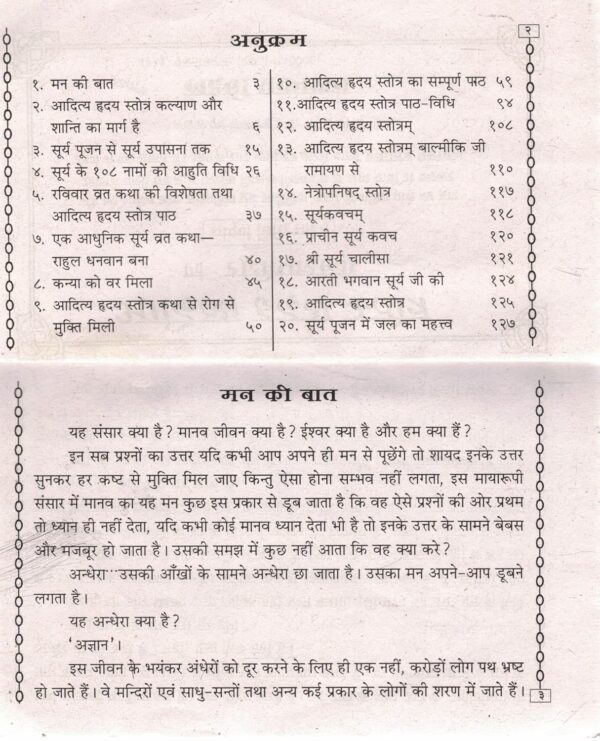 अनुक्रम
२
१. मन की बात ३
२. आदित्य हृदय स्तोत्र कल्याण और
शान्ति का मार्ग है ६
३. सूर्य पूजन से सूर्य उपासना तक १५
४. सूर्य के १०८ नामों की आहुति विधि २६
५. रविवार व्रत कथा की विशेषता तथा
आदित्य हृदय स्तोत्र पाठ ३७
७. एक आधुनिक सूर्य व्रत कथा—
राहुल धनवान बना ४०
८. कन्या को वर मिला ४५
९. आदित्य हृदय स्तोत्र कथा से रोग से
मुक्ति मिली ५०
१०. आदित्य हृदय स्तोत्र का सम्पूर्ण पाठ ५९
११.आदित्य हृदय स्तोत्र पाठ-विधि ९४
१२. आदित्य हृदय स्तोत्रम् १०८
१३. आदित्य हृदय स्तोत्रम् बाल्मीकि जी
रामायण से ११०
१४. नेत्रोपनिषद् स्तोत्र ११७
१५. सूर्यकवचम् ११८
१६. प्राचीन सूर्य कवच १२०
१७. श्री सूर्य चालीसा १२१
१८. आरती भगवान सूर्य जी की १२४
१९. आदित्य हृदय स्तोत्र १२५
२०. सूर्य पूजन में जल का महत्त्व १२७
मन की बात
यह संसार क्या है? मानव जीवन क्या है? ईश्वर क्या है और हम क्या हैं?
इन सब प्रश्नों का उत्तर यदि कभी आप अपने ही मन से पूछेंगे तो शायद इनके उत्तर
सुनकर हर कष्ट से मुक्ति मिल जाए किन्तु ऐसा होना सम्भव नहीं लगता, इस मायारूपी
संसार में मानव का यह मन कुछ इस प्रकार से डूब जाता है कि वह ऐसे प्रश्नों की ओर प्रथम
तो ध्यान ही नहीं देता, यदि कभी कोई मानव ध्यान देता भी है तो इनके उत्तर के सामने बेबस
और मजबूर हो जाता है। उसकी समझ में कुछ नहीं आता कि वह क्या करे?
अन्धेरा···उसकी आँखों के सामने अन्धेरा छा जाता है। उसका मन अपने-आप डूबने
लगता है।
यह अन्धेरा क्या है?
'अज्ञान'।
इस जीवन के भयंकर अंधेरों को दूर करने के लिए ही एक नहीं, करोड़ों लोग पथ भ्रष्ट
हो जाते हैं। वे मन्दिरों एवं साधु-सन्तों तथा अन्य कई प्रकार के लोगों की शरण में जाते हैं।
३